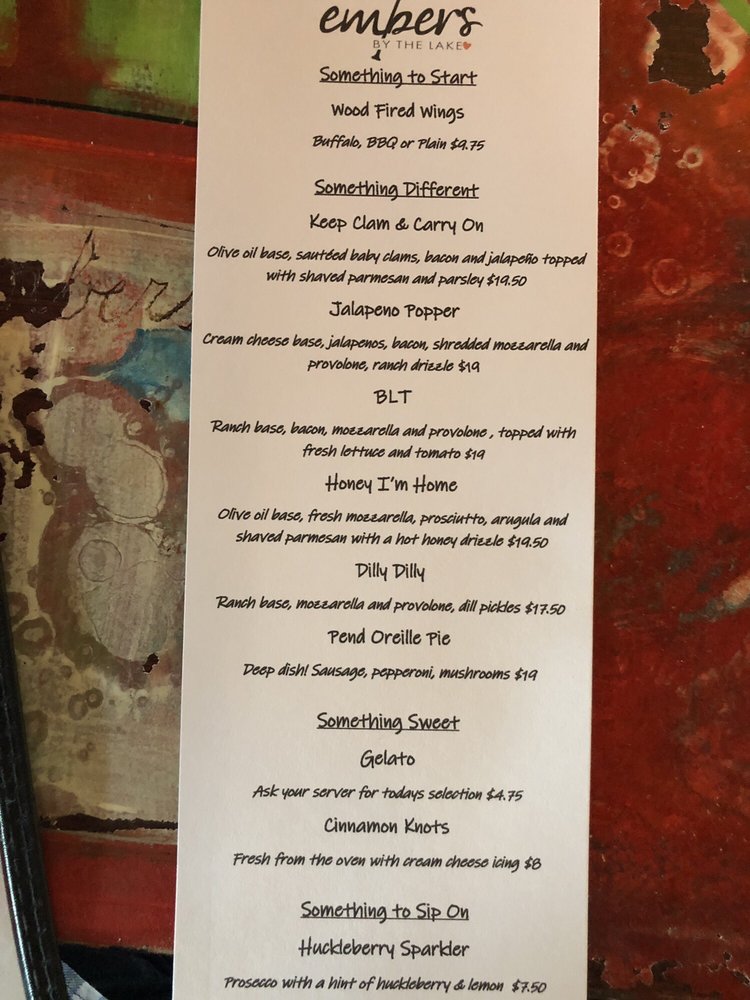 embers
BY THE LAKE
Something to Start
Wood Fired Wings
Buffalo, BBQ or Plain $9.75
Something Different
Keep Clam & Carry On
Olive oil base, sautéed baby clams, bacon and jalapeño topped
with shaved parmesan and parsley $19.50
Jalapeno Popper
Cream cheese base, jalapenos, bacon, shredded mozzarella and
provolone, ranch drizzle $19
BLT
Ranch base, bacon, mozzarella and provolone , topped with
fresh lettuce and tomato $19
Honey I'm Home
Olive oil base, fresh mozzarella, prosciutto, arugula and
shaved parmesan with a hot honey drizzle $19.50
Dilly Dilly
Ranch base, mozzarella and provolone, dill pickles $17.50
Pend Oreille Pie
Deep dish! Sausage, pepperoni, mushrooms $19
Something Sweet
Gelato
Ask your server for todays selection $4.75
Cinnamon Knots
Fresh from the oven with cream cheese icing $8
Something to Sip On
Huckleberry Sparkler
Prosecco with a hint of huckleberry & lemon $7.50